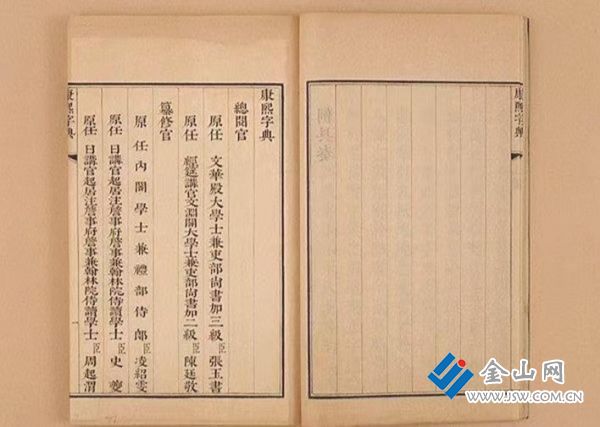 康熙字典
康熙字典
總閱官
原任 文華殿大學士兼吏部尚書加三級 臣 張玉書
原任 經筵講官文淵閣大學士兼吏部尚書加二級 臣 陳廷敬
纂修官
原任 內閣學士兼禮部侍郎 臣 凌紹雯
原任 日講官起居注詹事府詹事兼翰林院侍讀學士 臣 史夔
原任 日講官起居注詹事府詹事兼翰林院侍讀學士 臣 周起渭
康熙字典
金山网
www.JSW.com.cn